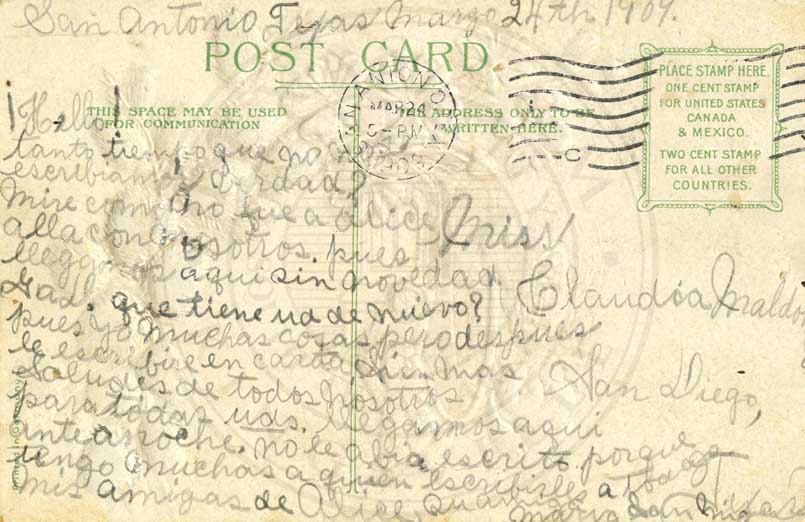 San Antonio Texas Marzo 24th 1909.
POST CARD
THIS SPACE MAY BE USED
FOR COMMUNICATION
THE ADDRESS ONLY TO BE
WRITTEN HERE.
PLACE STAMP HERE.
ONE CENT STAMP
FOR UNITED STATES
CANADA
& MEXICO.
TWO CENT STAMP
FOR ALL OTHER
COUNTRIES.
SAN ANTONIO
MAR 24
5-PM
1909
Hello!
tanto tiempo que no
escribia verdad?
Mire como no fue a Alice
alla con nosotros. pues
llegamos aqui sin novedad
que tiene ud de nuevo?
pues yo muchas cosas pero despues
le escribire en carta Sin mas
Saludes de todos nosotros
para todos uds. llegamos aqui
antearnoche. no le abia escrito porque
tengo muchas a quien escribirles a todas
mis amigas de Alice, Su
Maria San
Miss
Claudia Maldo
San Diego,
Texas
Printed in Germany